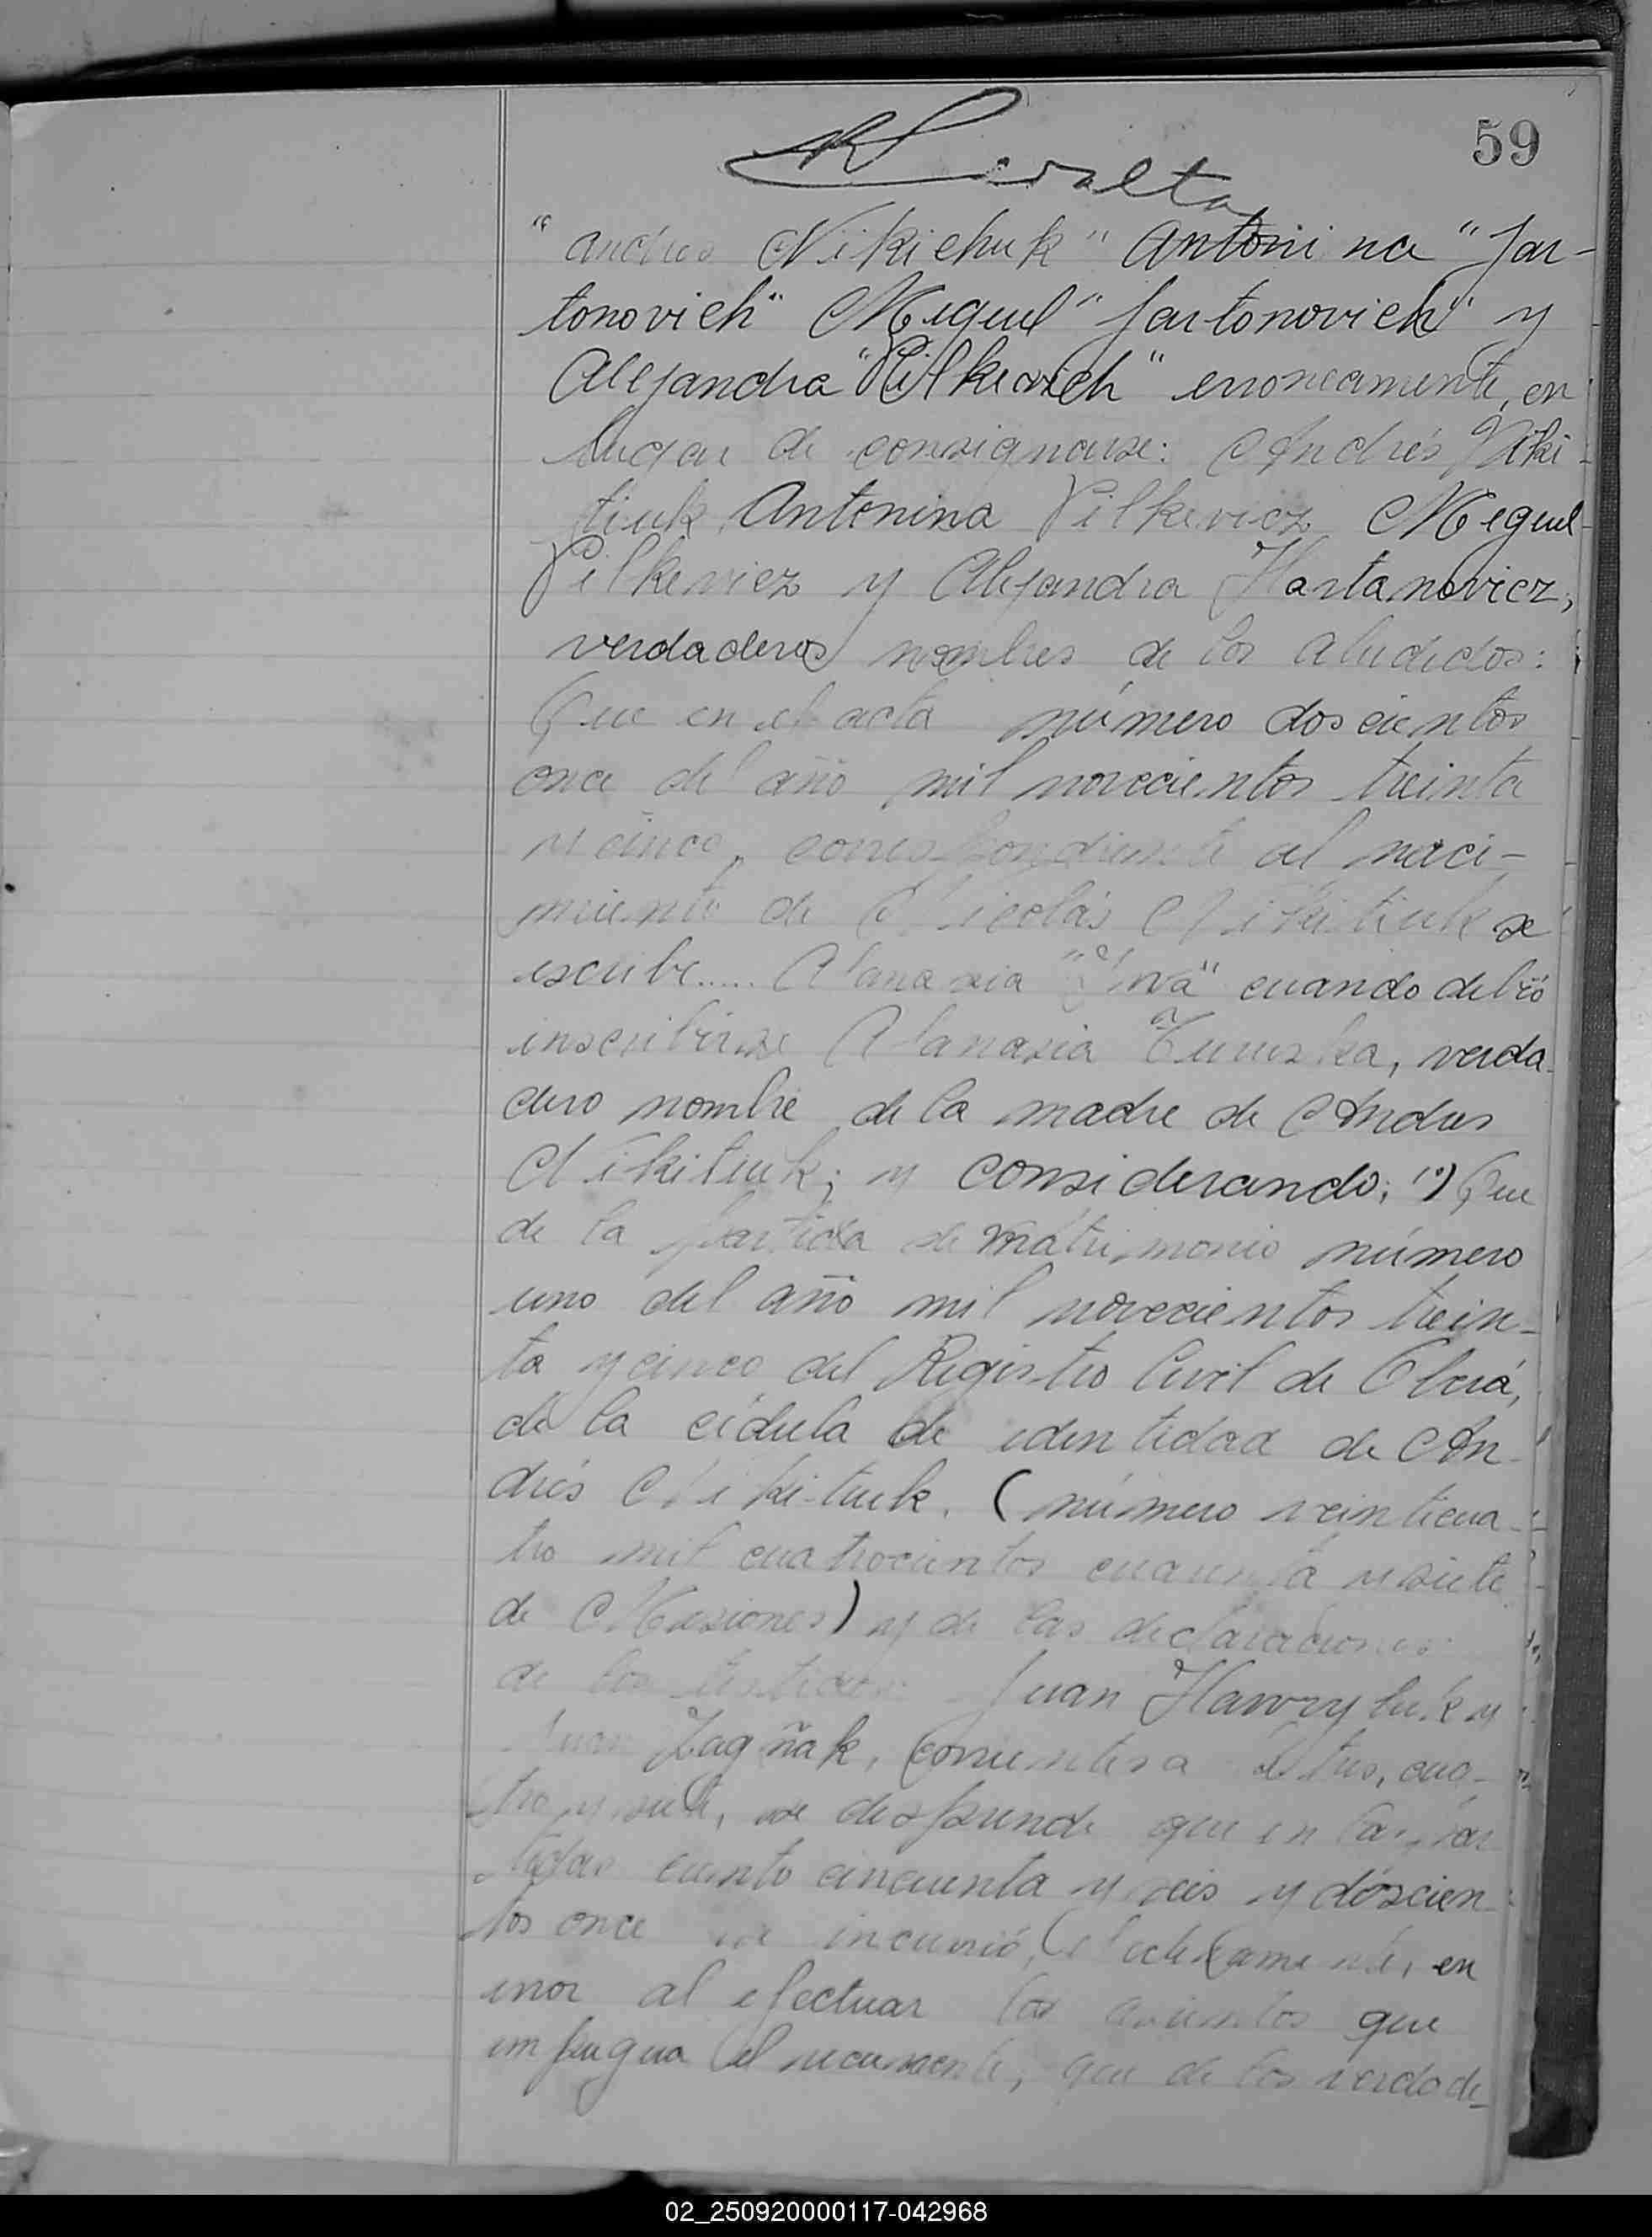 59
"Andres Nikichuk" Antonina "Jar-
tonovich" Miguel "Jartonovich" y
Alejandra "Pilkievich" erroneamente, en
lugar de consignarse: Andrés Niki-
tiuk, Antonina Pilkievicz Miguel
Pilkievicz y Alejandra Hartanovicz,
verdaderos nombres de los aludidos:
Que en el acta número doscientos
once del año mil novecientos treinta
y cinco, correspondiente al naci-
miento de Nicolás Nikitiuk se
escribe..... Atanasia cuando debió
inscribirse Atanasia verda-
dero nombre de la madre de Andres
Nikitiuk; y considerando; 1º) Que
de la partida de matrimonio número
uno del año mil novecientos trein-
ta y cinco del Registro Civil de Oberá,
de la cédula de identidad de An-
drés Nikitiuk. (número veinticua-
tro mil cuatrocientos cuarenta y siete
de Misiones) y de las declaraciones
de los testigos Juan Hawryluk y
Juan Zagñak, corrientes a fs tres, cua-
tro y siete, se desprende que en las par-
tidas ciento cincuenta y seis y doscien-
tos once se incurrió, en
error al efectuar los asientos que
impugna el recurrente, que de los verdade-
02_250920000117-042968